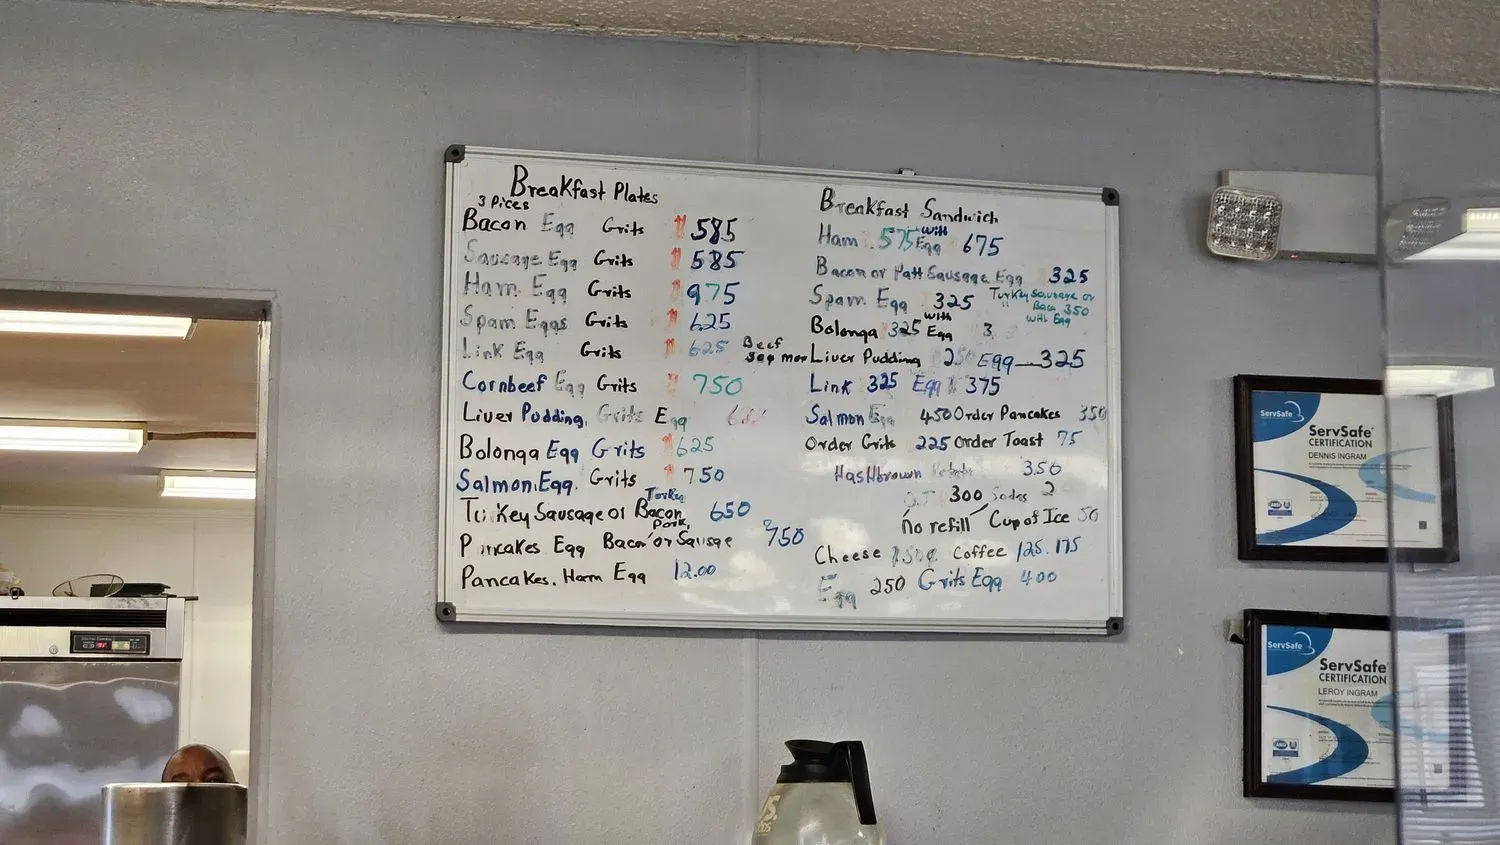 Breakfast Plates
3 Pices
Bacon Egg Grits 585
Sausage Egg Grits 585
Ham Egg Grits 975
Spam Eggs Grits 625
Link Egg Grits 625 Beef
Cornbeef Egg Grits 750
Liver Pudding Grits Egg
Bolonga Egg Grits 625
Salmon Egg Grits 750
Turkey
Turkey Sausage or Bacon 650
Pork
Pancakes Egg Bacon or Sausge 750
Pancakes. Ham Egg 12.00
Breakfast Sandwich
Ham 575 with Egg 675
Bacon or Patt Sausage Egg 325
Spam Egg 325 Turkey Sausage or
Baco 350
with Egg
Bolonga 325 with Egg 3
Liver Pudding 25 Egg 325
Link 325 Egg 375
Salmon Egg 450 Order Pancakes 350
Order Grits 225 Order Toast 75
Hashbrown 350
300 Sodas 2
no refill Cup of Ice 50
Cheese Coffee 125. 175
Egg 250 Grits Egg 400
ServSafe
ServSafe
CERTIFICATION
DENNIS INGRAM
ServSafe
ServSafe
CERTIFICATION
LEROY INGRAM